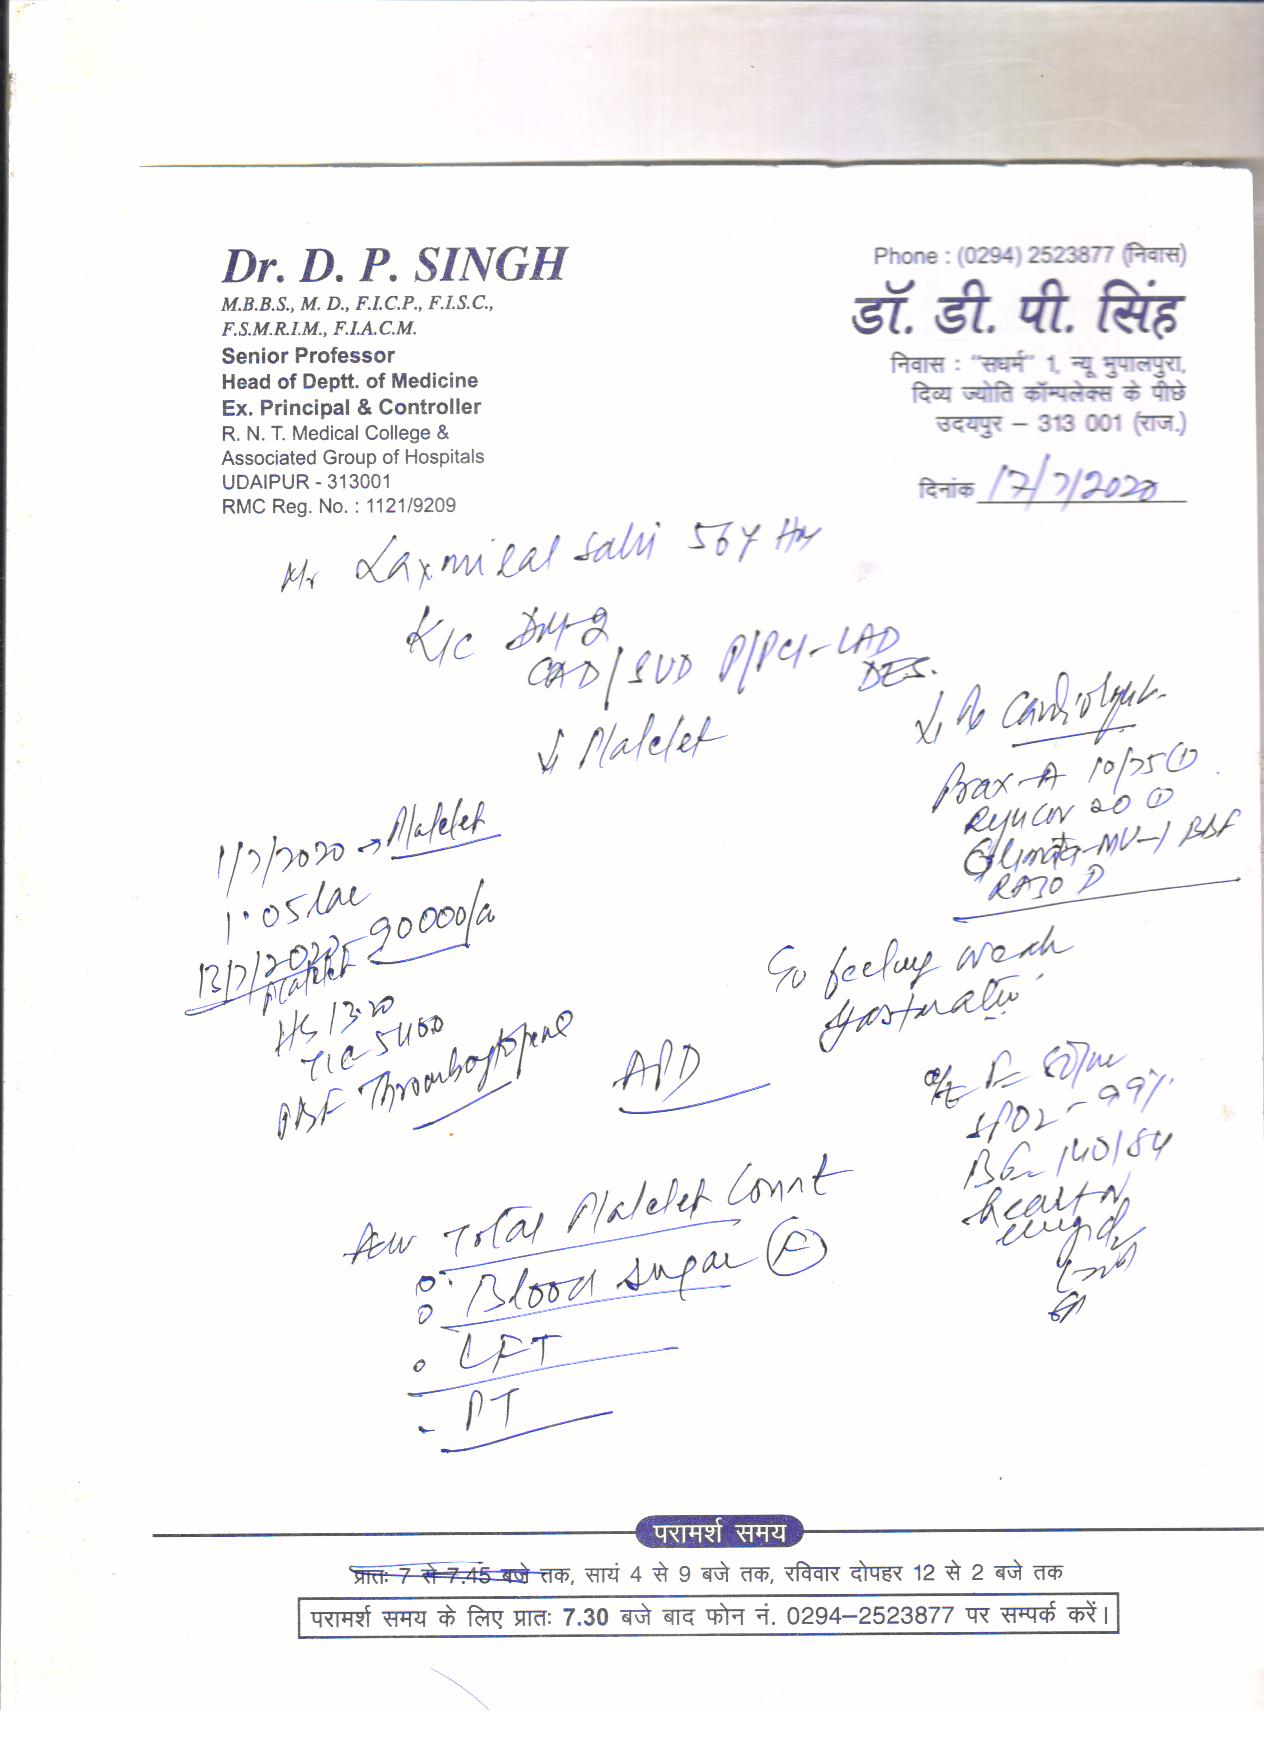 Dr. D. P. SINGH
M.B.B.S., M. D., F.I.C.P., F.I.S.C.,
F.S.M.R.I.M., F.I.A.C.M.
Senior Professor
Head of Deptt. of Medicine
Ex. Principal & Controller
R. N. T. Medical College &
Associated Group of Hospitals
UDAIPUR - 313001
RMC Reg. No. : 1121/9209
Phone : (0294) 2523877 (निवास)
डॉ. डी. पी. सिंह
निवास : "सधर्म" 1, न्यू भुपालपुरा,
दिव्य ज्योति कॉम्पलेक्स के पीछे
उदयपुर – 313 001 (राज.)
दिनांक 17/7/2020
Mr Laxmilal Sahi 56Y
K/C DM-2
CAD/SVD P/PCI-LAD
DES.
↓ Platelet
Cardiologist
10/75 ①
20 ①
-MV-1 BBF
RAZO D
1/7/2020 → Platelet
1.05 lac
13/7/2020 Platelet 90000/
Hb 13.20
TLC 5400
PBF Thrombocytopenia
feeling weak
APD
O/E
SPO2 - 99%
140/84
Heart N
Adv Total Platelet Count
Blood Sugar (F)
LFT
PT
परामर्श समय
प्रातः 7 से 7.45 बजे तक, सायं 4 से 9 बजे तक, रविवार दोपहर 12 से 2 बजे तक
परामर्श समय के लिए प्रातः 7.30 बजे बाद फोन नं. 0294–2523877 पर सम्पर्क करें।